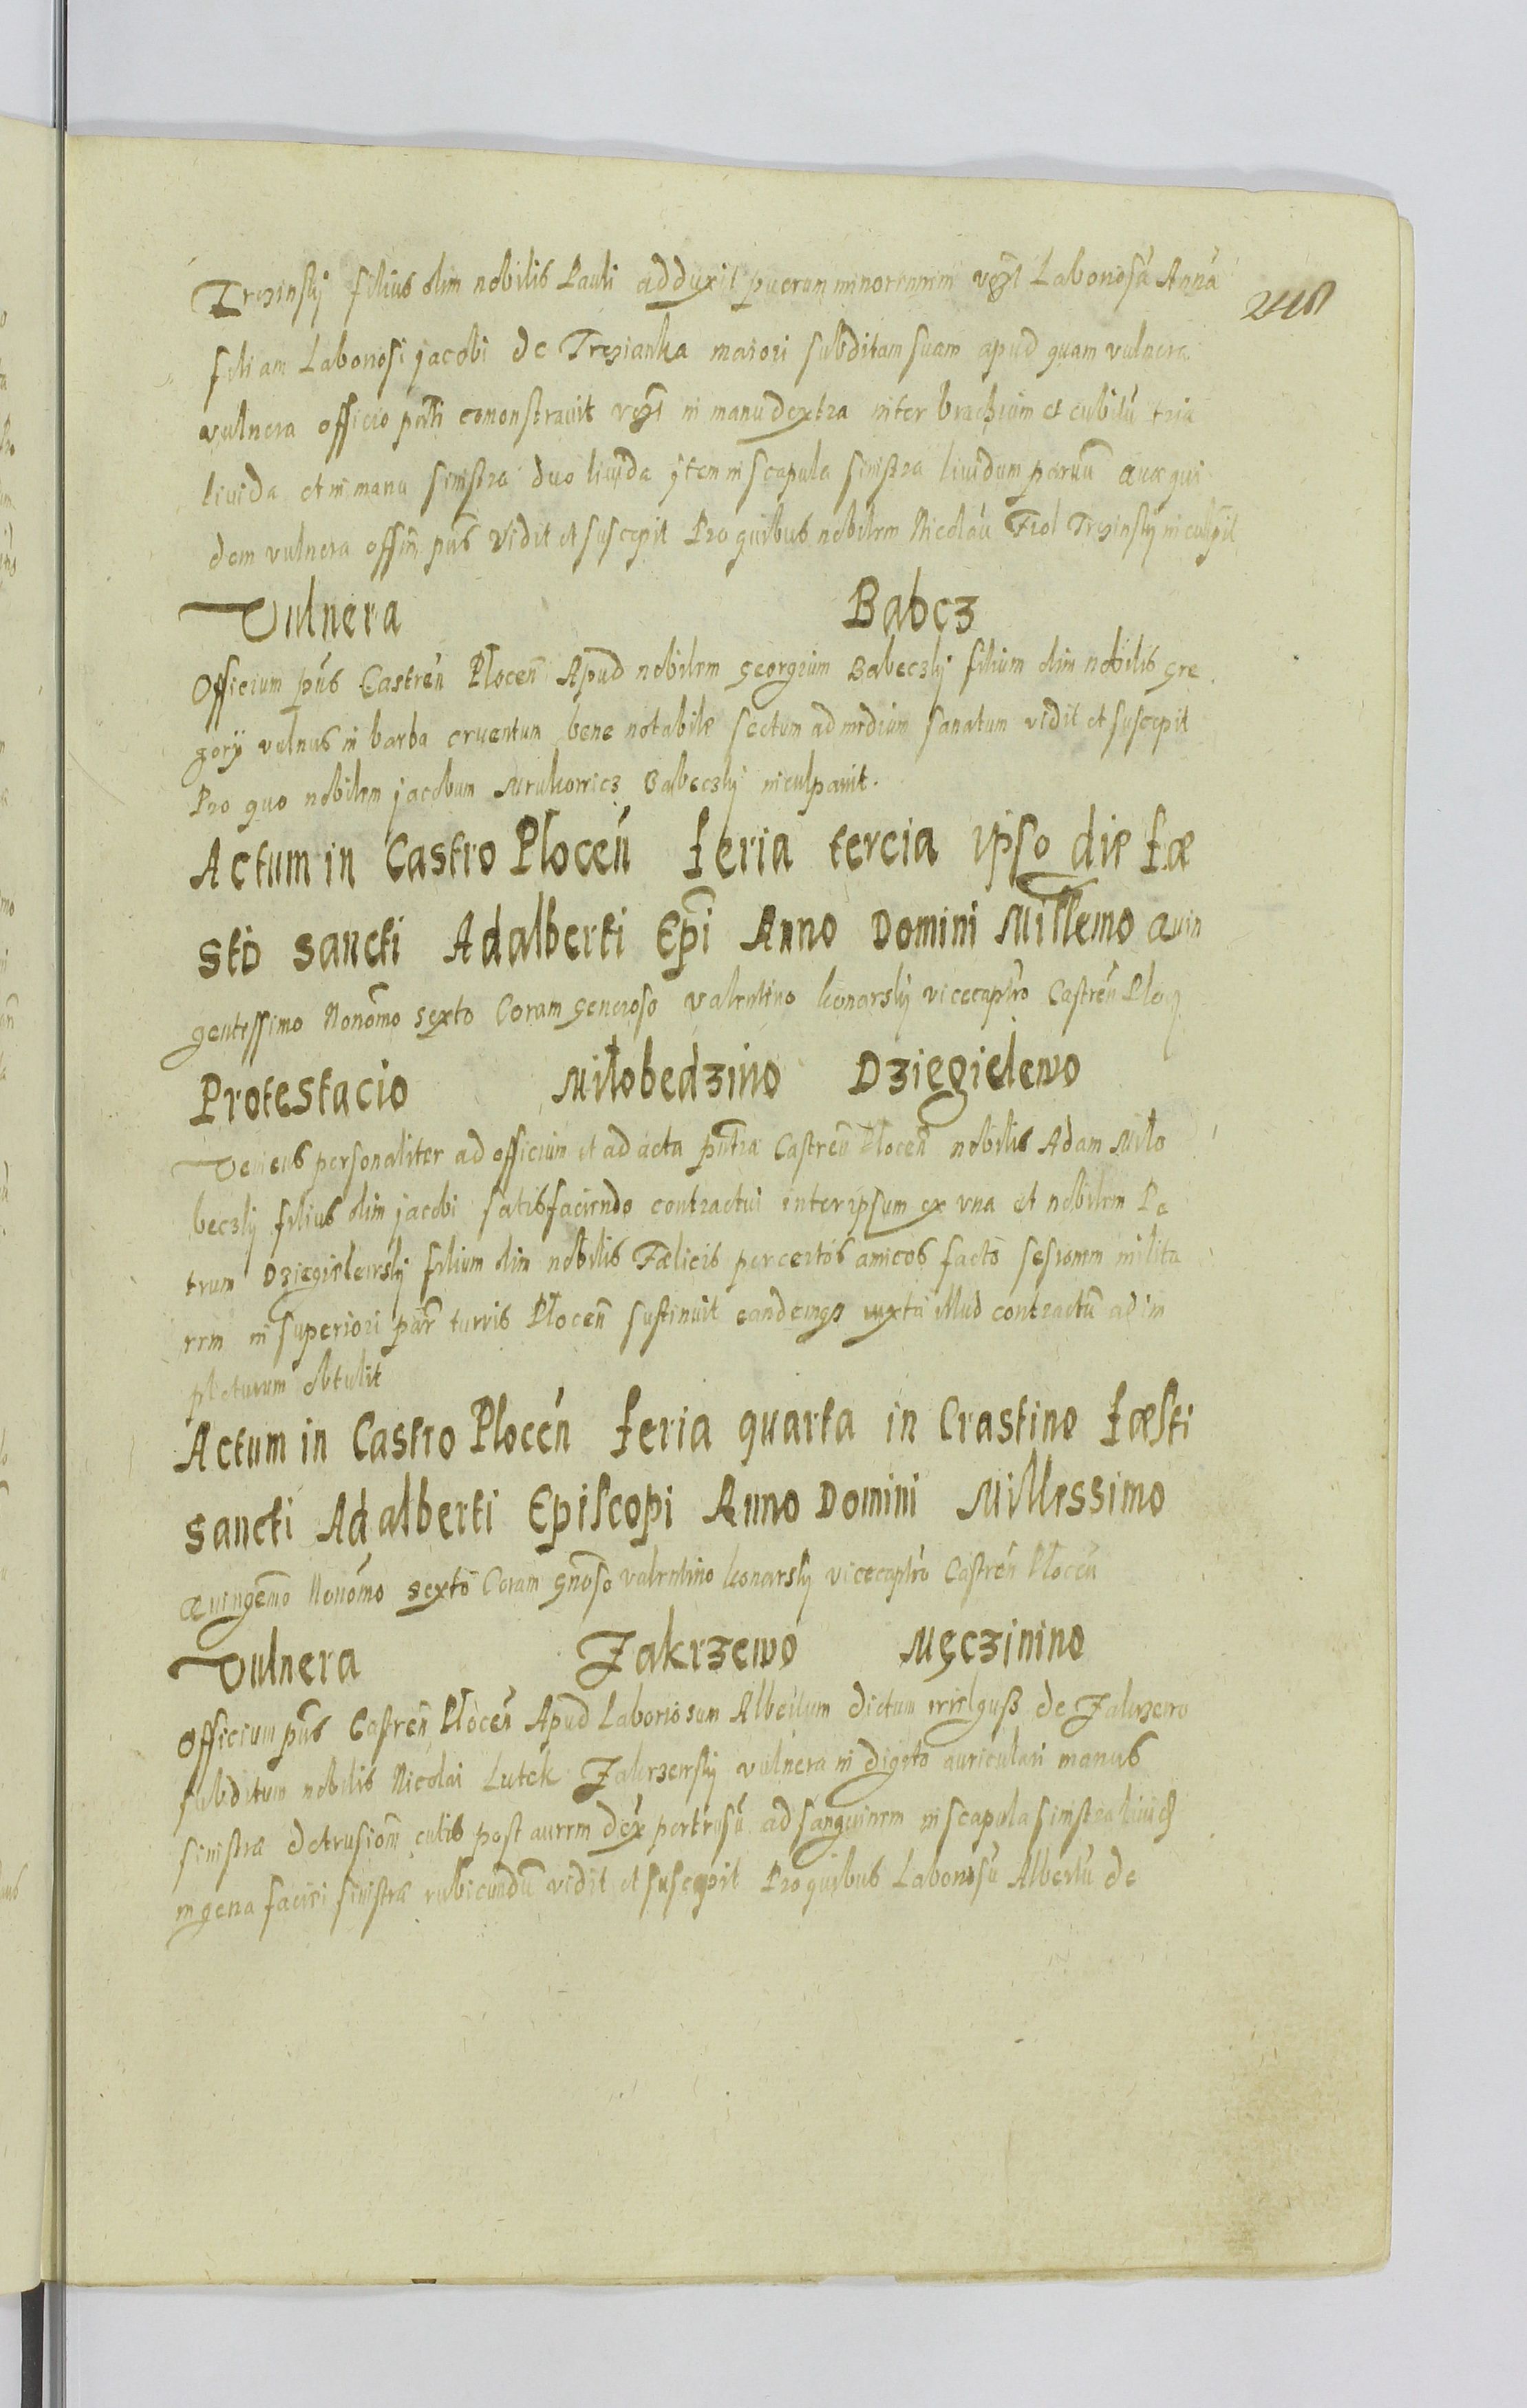 Trzinsky filius olim nobilis Pauli adduxit puerum minorennem vczt Laboriosa Anna
248
filiam Laboriosi jacobi de Trzianka maiori subditam suam apud quam vulnera
vulnera officio pnti comonstravit vczt in manu dextra inter brachium et cubitu tria
livida et in manu sinistra duo livida jtem in scapula sinistra lividum parvu Quæ qui
dem vulnera offm pns vidit et suscepit Pro quibus nobilem Nicolau Fiol Trzinsky inculpit
Vulnera Babcz
Officium pns Castren Plocen Apud nobilem georgium Babeczky filium olim nobilis gre
gorÿ vulnus in barba cruentum bene notabile sectum ad medium sanatum vidit et suscepit
Pro quo nobilem jacobum Mrukowicz Babeczky inculpavit.
Actum in Castro Plocen feria tercia ipso die fæ
sto sancti Adalberti Epi Anno Domini Millemo Quin
gentessimo Nonomo sexto Coram generoso valentino konarsky vicecaptro Castren Ploc
Protestacio Miłobedzino Dziegielewo
Veniens personaliter ad officium et ad acta pntra Castren Plocen nobilis Adam Miło
beczky filius olim jacobi satisfaciendo contractui inter ipsum ex una et nobilem Pe
trum Dziegielewsky filium olim nobilis Fælicis per certos amicos facto sesionem milita
rem in superiori par turris Plocen sustinuit eandemqs iuxta illud contractu adim
pleturum obtulit
Actum in Castro Plocen feria quarta in Crastino fæsti
sancti Adalberti Episcopi Anno Domini Millessimo
Quingemo Nonomo sexto Coram gnoso valentino konarsky vicecaptro Castren Plocen
Vulnera Zakrzewo Męczinino
Officium pns Castren Plocen Apud Laboriosum Albertum dictum wielguß de Zakrzewo
subditum nobilis Nicolai Lutek Zakrzewsky vulnera in digito auriculari manus
sinistræ detrusiom cutis post aurem dex pertusu ad sanguinem in scapula sinistra livid
in gena faciei sinistræ rubicundu vidit et suscepit Pro quibus Laboriosu Albertu de